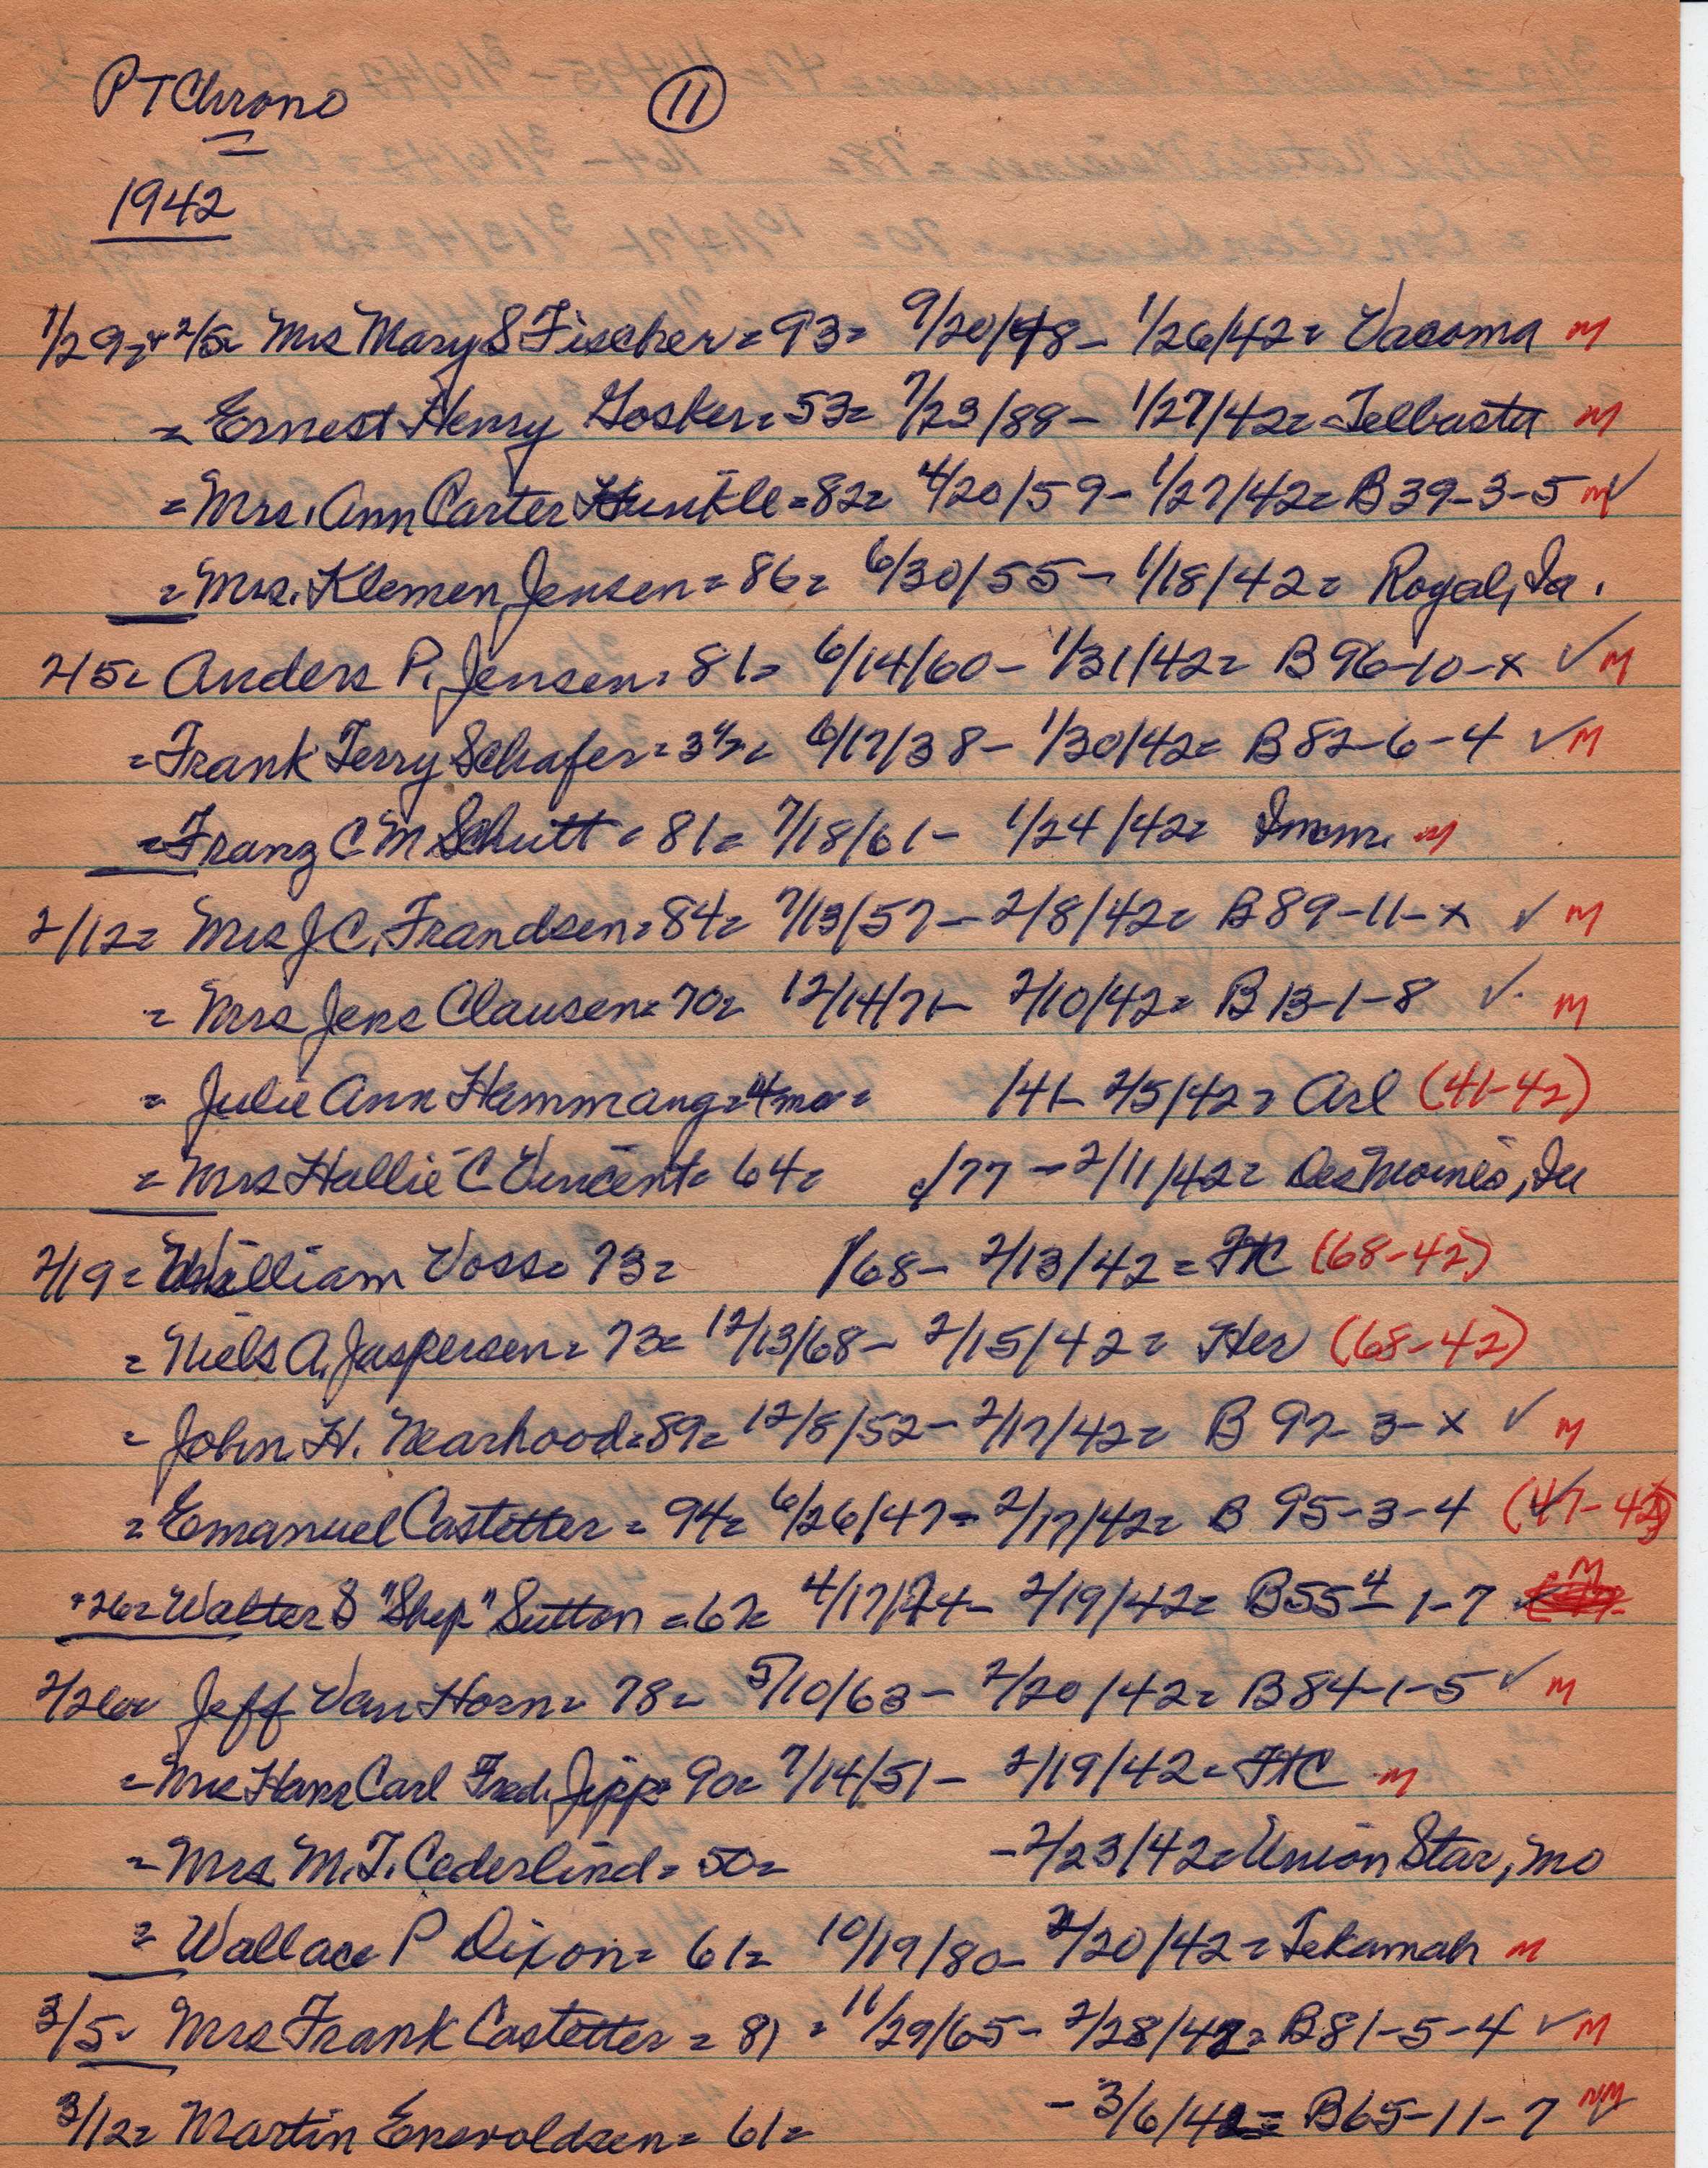 PT Chrono
11
1942
1/29 + 2/5 = Mrs Mary S Fischer = 93 = 9/20/48 - 1/26/42 = Vacoma M
= Ernest Henry Gosker = 53 = 7/23/88 - 1/27/42 = Telbasta M
= Mrs. Ann Carter Hunkle = 82 = 4/20/59 - 1/27/42 = B 39-3-5 M ✓
= Mrs. Klemen Jensen = 86 = 6/30/55 - 1/18/42 = Royal, Ia.
2/5 = Anders P. Jensen = 81 = 6/14/60 - 1/31/42 = B 96-10-x ✓ M
= Frank Terry Schafer = 3 1/2 = 6/17/38 - 1/30/42 = B 82-6-4 ✓ M
= Franz C M Schutt = 81 = 7/18/61 - 1/24/42 = Imm. M
2/12 = Mrs J C. Frandsen = 84 = 7/13/57 - 2/8/42 = B 89-11-x ✓ M
= Mrs Jens Clausen = 70 = 12/14/71 - 2/10/42 = B 13-1-8 ✓ M
= Julie Ann Hammang = 4 mo = /41 - 2/5/42 = Arl (41-42)
= Mrs Hallie C Vincent = 64 = /77 - 2/11/42 = Des Moines, Ia
2/19 = William Voss = 73 = /68 - 2/13/42 = FtC (68-42)
= Niels A. Jaspersen = 73 = 12/13/68 - 2/15/42 = Her (68-42)
= John H. Nearhood = 89 = 12/8/52 - 2/17/42 = B 92-3-x ✓ M
= Emanuel Castetter = 94 = 6/26/47 - 2/17/42 = B 95-3-4 ✓ (47-42)
+ 26 = Walter S "Shep" Sutton = 67 = 4/17/74 - 2/19/42 = B 55 4 - 1-7 M
2/26 = Jeff Van Horn = 78 = 5/10/63 - 2/20/42 = B 84-1-5 ✓ M
= Mrs Hans Carl Fred. Jipp = 90 = 7/14/51 - 2/19/42 = FtC M
= Mrs M. T. Cederlind = 50 = - 2/23/42 = Union Star, Mo
= Wallace P Dixon = 61 = 10/19/80 - 2/20/42 = Tekamah M
3/5 = Mrs Frank Castetter = 81 = 11/29/65 - 2/28/42 = B 81-5-4 ✓ M
3/12 = Martin Enevoldsen = 61 = - 3/6/42 = B 65-11-7 NM ✓